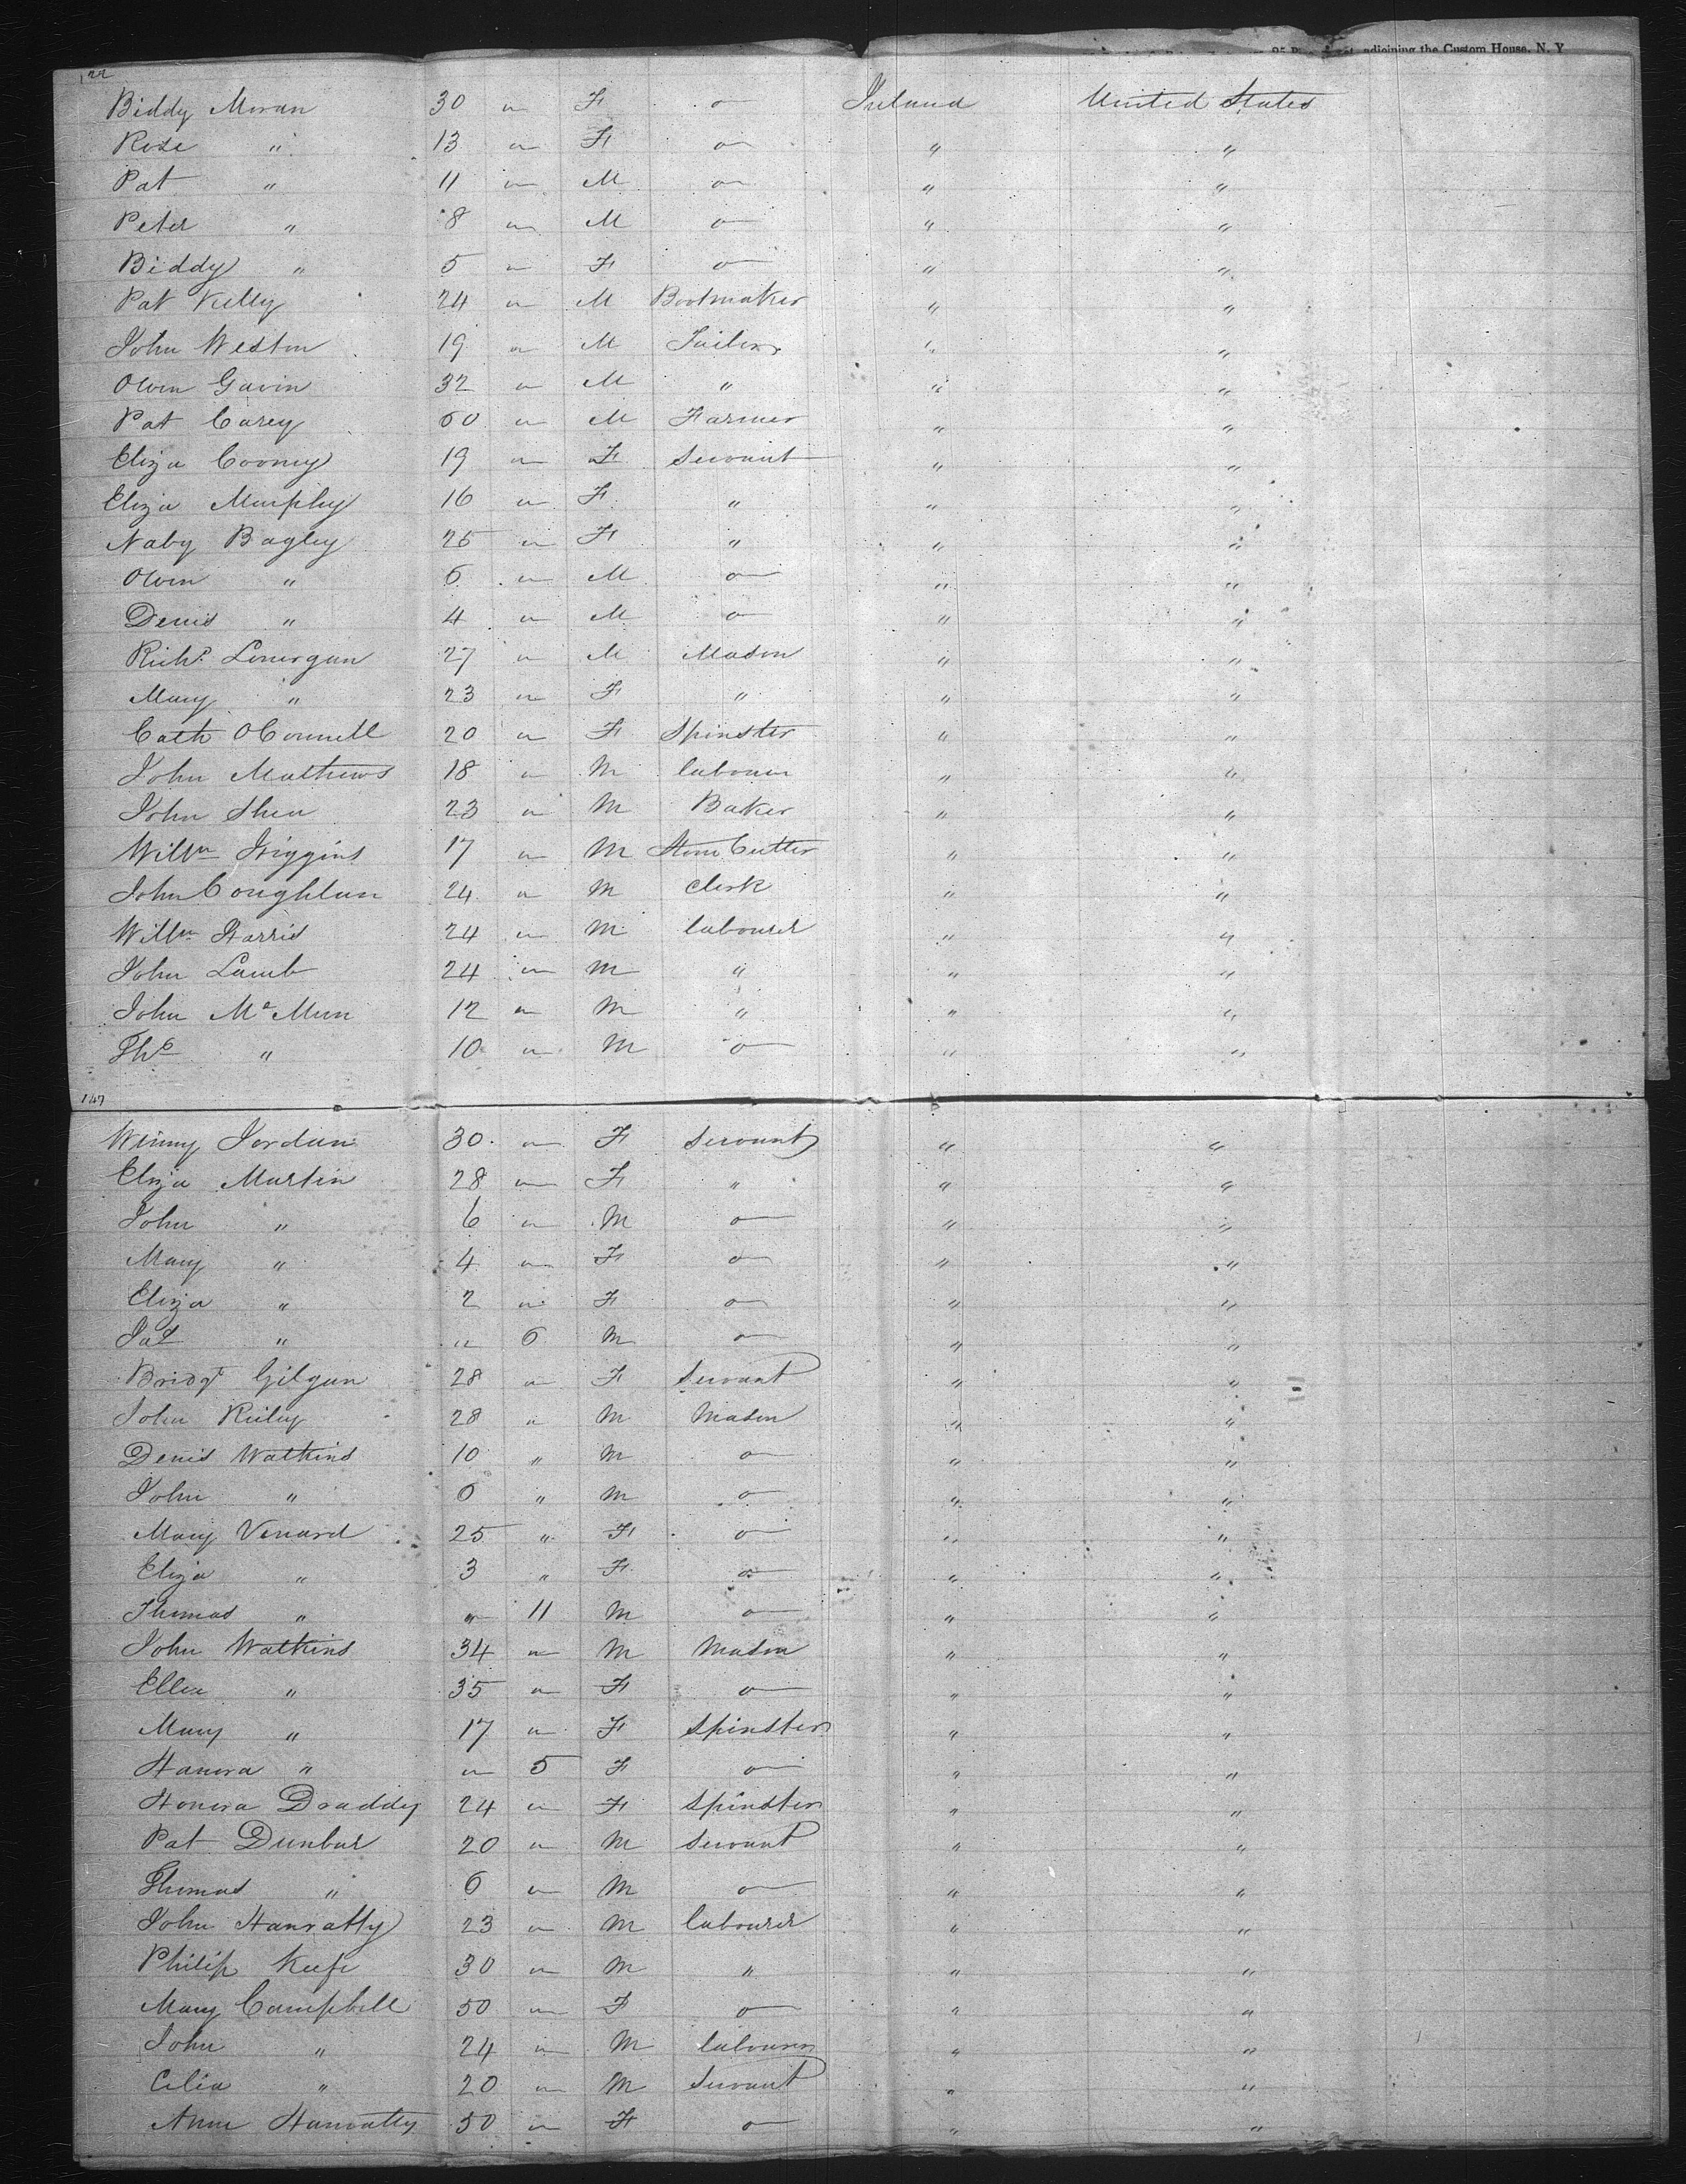 adjoining the Custom House, N. Y
122
Biddy Moran 30 " F o Ireland United States
Rose " 13 " F o " "
Pat " 11 " M o " "
Peter " 8 " M o " "
Biddy " 5 " F o " "
Pat Kelly 24 " M Bootmaker " "
John Weston 19 " M Tailor " "
Owen Gavin 32 " M " " "
Pat Carey 60 " M Farmer " "
Eliza Cooney 19 " F Servant " "
Eliza Murphy 16 " F " " "
Naby Bagley 25 " F " " "
Owen " 6 " M o " "
Denis " 4 " M o " "
Richd Lonergan 27 " M Mason " "
Mary " 23 " F " " "
Cath OConnell 20 " F Spinster " "
John Mathews 18 " M labourer " "
John Shea 23 " M Baker " "
Willm Higgins 17 " M Stone Cutter " "
John Coughlan 24 " M Clerk " "
Willm Harris 24 " M labourer " "
John Lamb 24 " M " " "
John McMun 12 " M " " "
Ths " 10 " M o " "
147
Winny Jordan 30 " F Servant " "
Eliza Martin 28 " F " " "
John " 6 " M o " "
Mary " 4 " F o " "
Eliza " 2 " F o " "
Jas " " 6 M o " "
Bridgt Gilgan 28 " F Servant " "
John Reiley 28 " M Mason " "
Denis Watkins 10 " M o " "
John " 6 " M o " "
Mary Venard 25 " F o " "
Eliza " 3 " F o " "
Thomas " " 11 M o " "
John Watkins 34 " M Mason " "
Ellen " 35 " F o " "
Mary " 17 " F Spinster " "
Hanora " " 5 F o " "
Honora Draddy 24 " F Spinster " "
Pat Dunbar 20 " M Servant " "
Thomas " 6 " M o " "
John Hanratty 23 " M labourer " "
Philip Keefe 30 " M " " "
Mary Campbell 50 " F o " "
John " 24 " M labourer " "
Celia " 20 " M Servant " "
Anne Hanratty 50 " F o " "